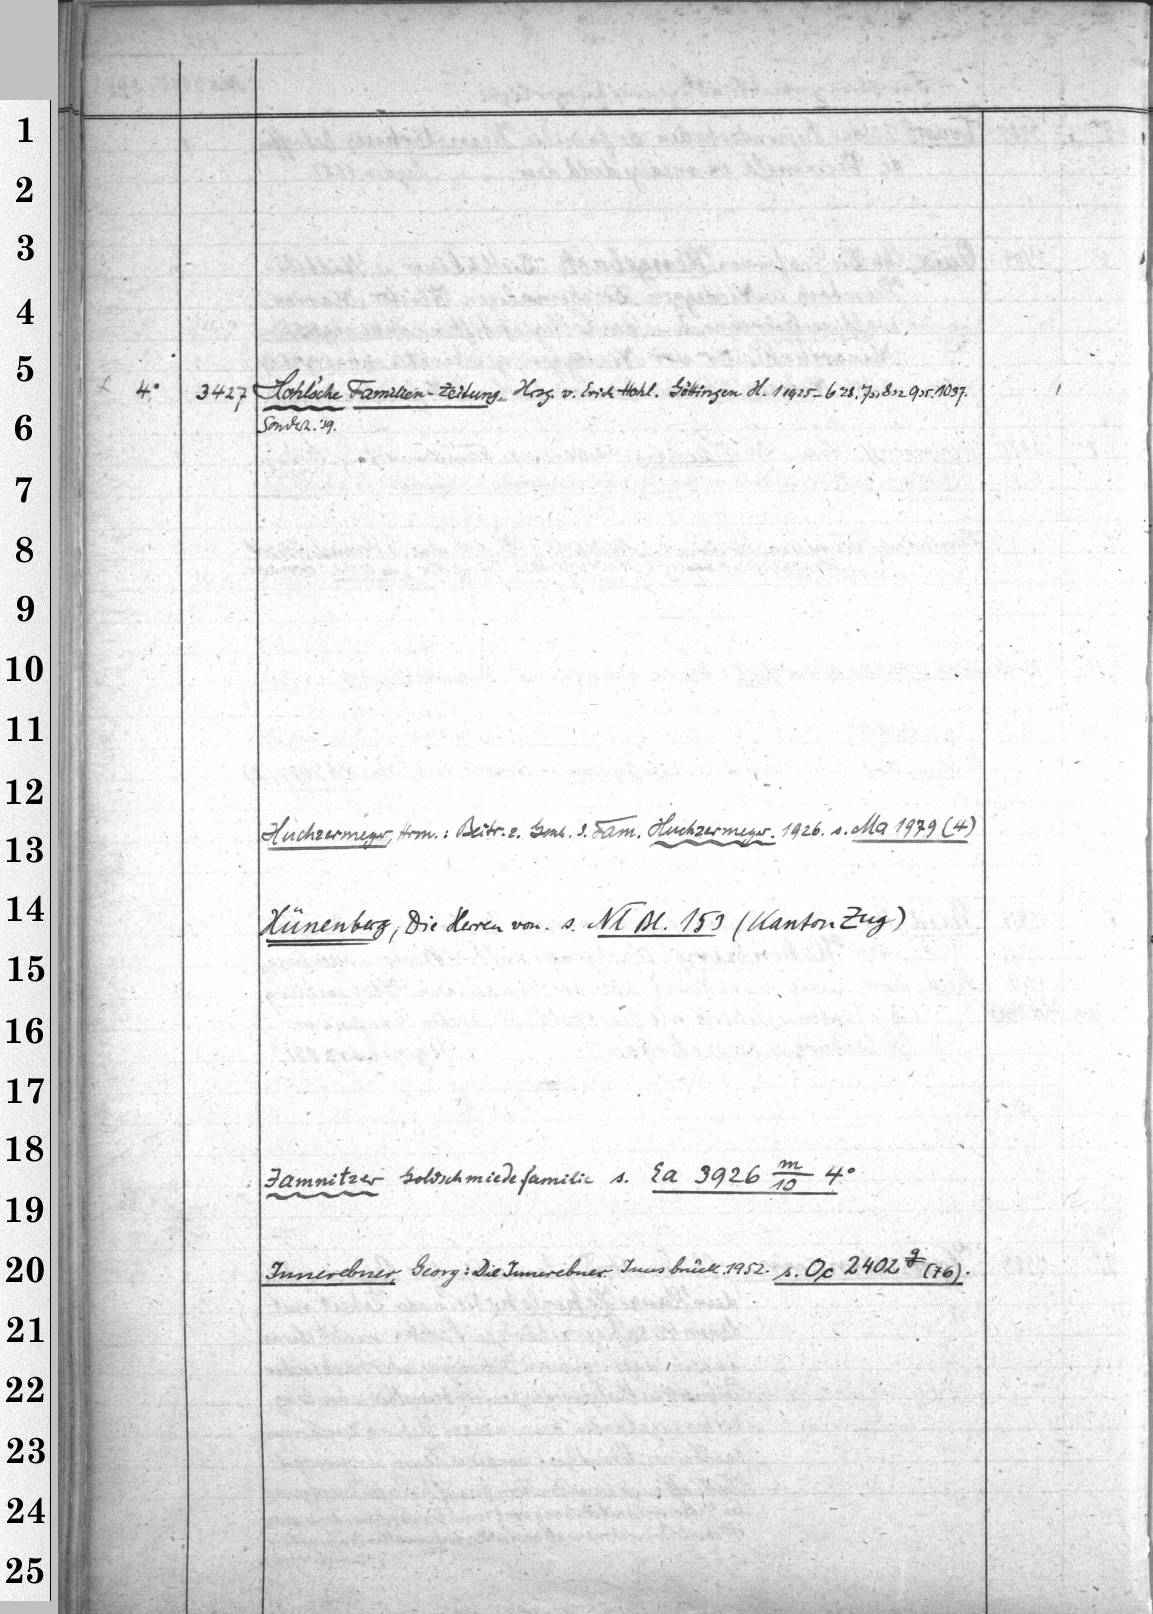 1
2
3
4
5
4° 3427 Hohl'sche Familien-Zeitung. Hrsg. v. Erich Hohl. Göttingen H. 1 1925 - 6 28, 7 31, 8 32 9 35. 10 37.
6
Sonderh. '39.
7
8
9
10
11
12
13
Huchzermeyer, Hrm.: Beitr. z. Gesch. d. Fam. Huchzermeyer. 1926. s. Ma 1979 (4)
14
Hünenberg, Die Herren von. s. Nl Bl. 153 (Kanton Zug)
15
16
17
18
Jamnitzer Goldschmiedefamilie s. Ea 3926 m/10 4°
19
20
Innerebner, Georg: Die Innerebner. Innsbruck 1952. s. Oc 2402 g/8 (76).
21
22
23
24
25